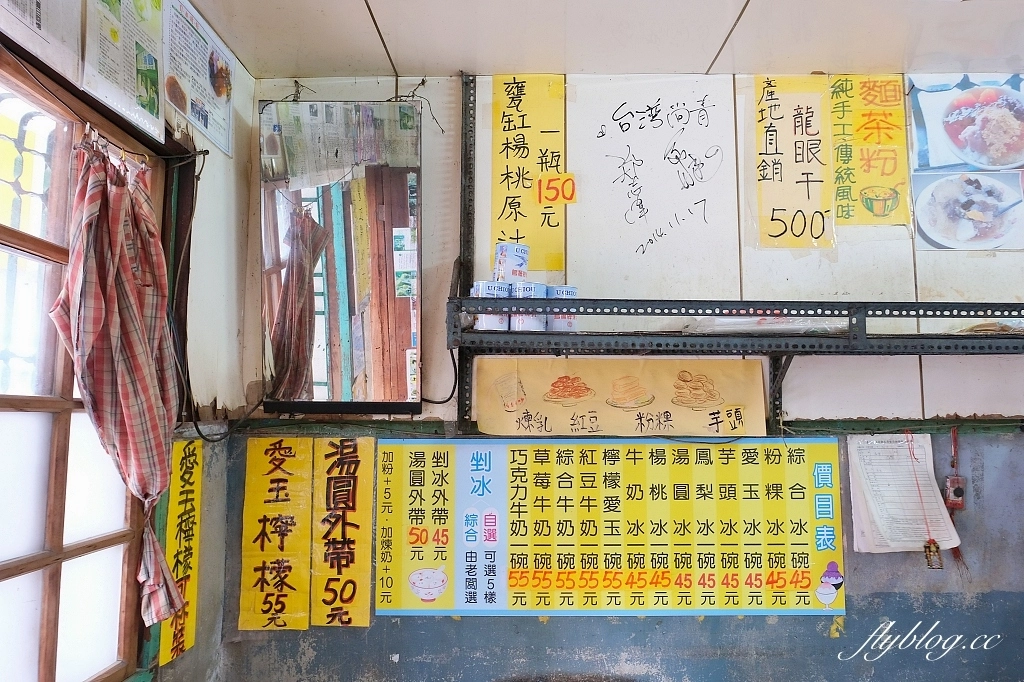 甕缸楊桃原汁
一瓶150元
台灣尚青
2014.11.17
產地直銷
龍眼干
500
純手工傳統風味
麵茶粉
煉乳
紅豆
粉粿
芋頭
愛玉檸檬
愛玉
檸檬
55元
湯圓外帶50元
價目表
綜合冰一碗45元
粉粿冰一碗45元
愛玉冰一碗45元
芋頭冰一碗45元
鳳梨冰一碗45元
湯圓冰一碗45元
楊桃冰一碗45元
牛奶冰一碗45元
檸檬愛玉一碗55元
紅豆牛奶一碗55元
綜合牛奶一碗55元
草莓牛奶一碗55元
巧克力牛奶一碗55元
剉冰
自選 可選5樣
綜合 由老闆選
剉冰外帶45元
湯圓外帶50元
加粉+5元.加煉奶+10元
flyblog.cc